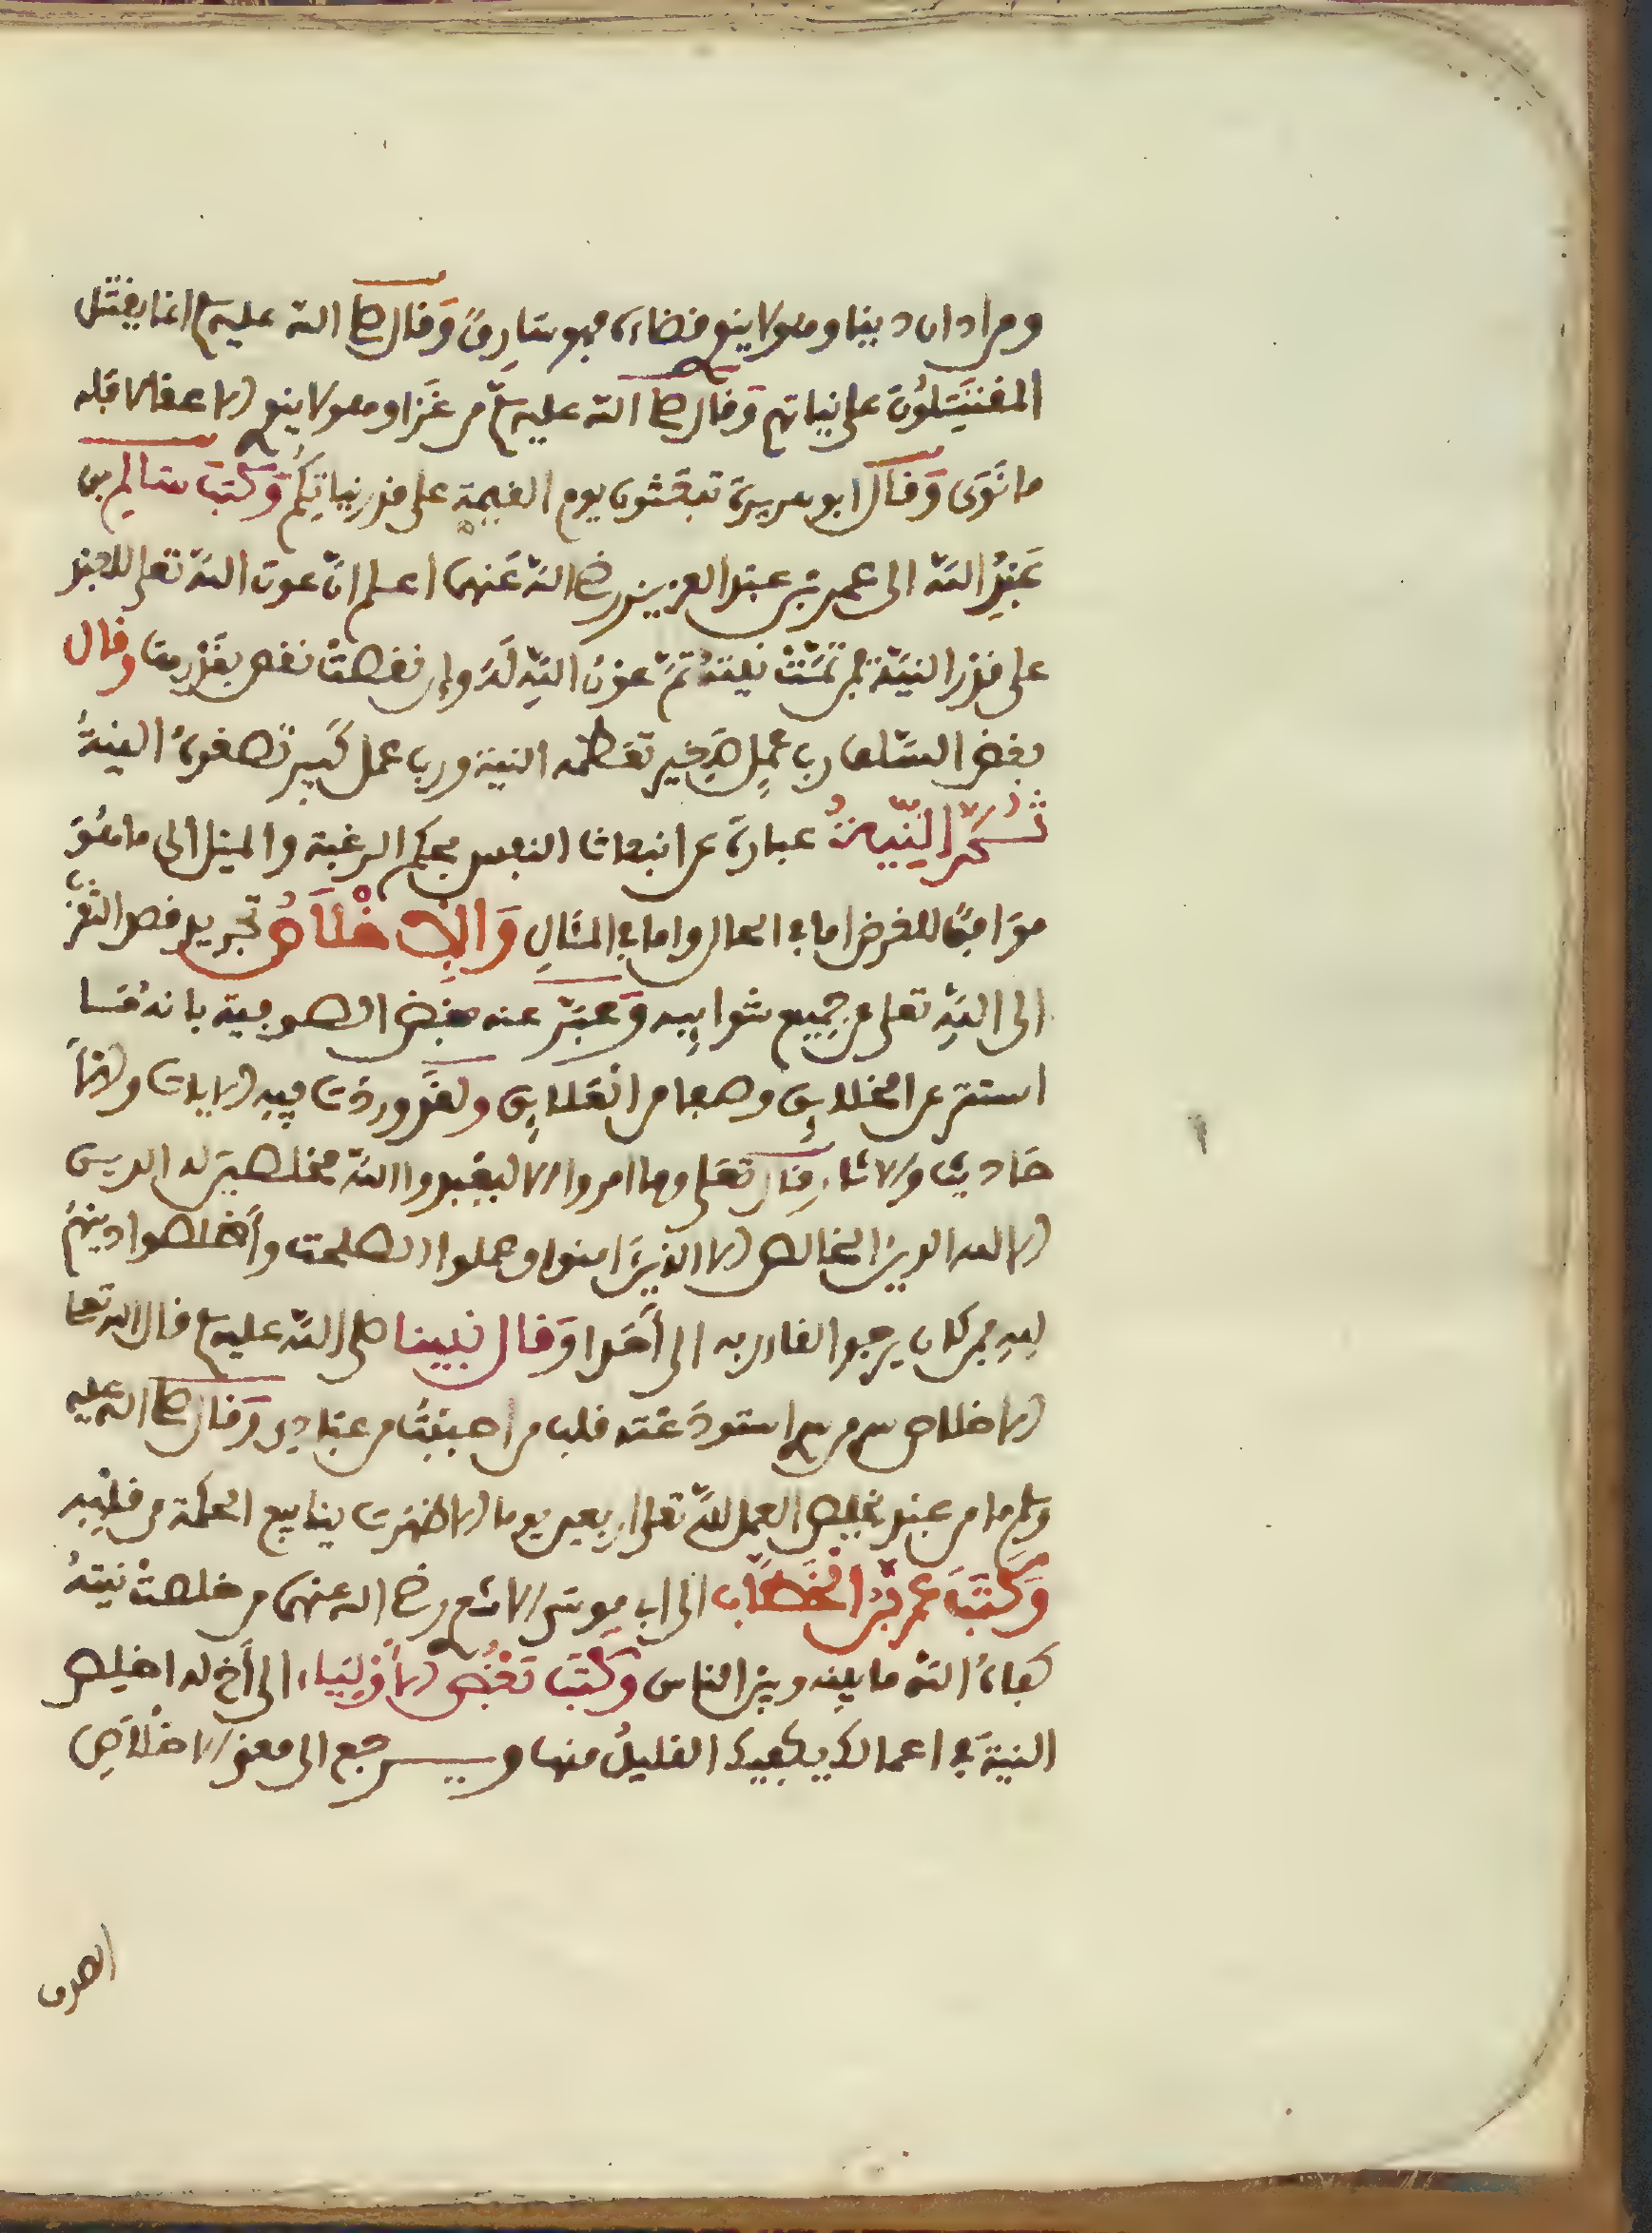 ومن ادان دينا وهو لا ينوي قضاءه فهو سارق وقال صلى الله عليه وسلم إنما يقتتل
المقتتلون على نياتهم وقال صلى الله عليه وسلم من غزا وهو لا ينوي إلا عقالا فله
ما نوى وقال ابو هريرة تبعثون يوم القيمة على قدر نياتكم وكتب سالم بن
عبد الله الى عمر بن عبد العزيز رضي الله عنهما اعلم ان عون الله تعلى للعبد
على قدر النية فمن تمت نيته تم عون الله له وإن نقصت نقص بقدرها وقال
بعض السلف رب عمل صغير تعظمه النية ورب عمل كبير تصغره النية
ثم النية عبارة عن انبعاث النفس بحكم الرغبة والميل الى ما هو
موافق للغرض اما في الحال واما في المئال والإخلاص تجريد قصد التقرب
الى الله تعلى من جميع شوايبه وعبر عنه بعض الصوفية بانه
استتر عن الخلايق وصفا من العلايق ولقد وردت فيه الايات والا
حاديث والاثار قال تعلى وما امروا الا ليعبدوا الله مخلصين له الدين
الا لله الدين الخالص الا الذين امنوا وعملوا الصلحت وأخلصوا دينهم
لله فمن كان يرجوا لقاء ربه الى أحدا وقال نبينا صلى الله عليه وسلم قال الله تعلى
الاخلاص سر من سري استودعته قلب من احببت من عبادي وقال صلى الله عليه
وسلم ما من عبد يخلص العمل لله تعلى اربعين يوما الا ظهرت ينابيع الحكمة من قلبه
وكتب عمر بن الخطاب الى ابي موسى الاشعري رضي الله عنهما من خلصت نيته
كفاه الله ما بينه وبين الناس وكتب بعض الأولياء الى أخ له اخلص
النية في اعمالك يكفيك القليل منها ويرجع الى معنى الاخلاص
الصدق